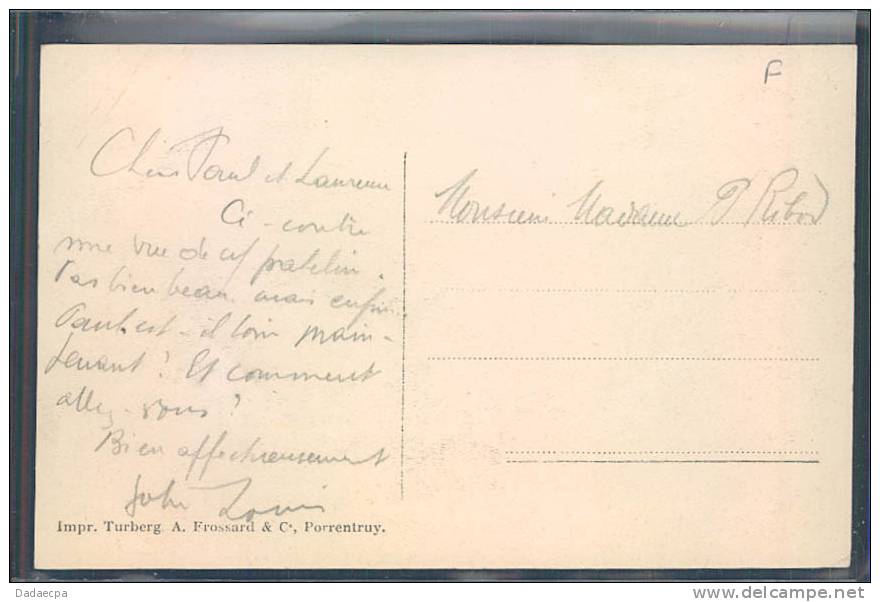 F
Chers Paul et Laurence
Ci-contre
une vue de cef patelin.
Pas bien beau mais enfin.
Paul est-il loin main-
tenant? Et comment
allez-vous?
Bien affectueusement
John Louis
Impr. Turberg, A. Frossard & Cº, Porrentruy.
Monsieur Madame P Ribod
Dadaecpa
delcampe.net